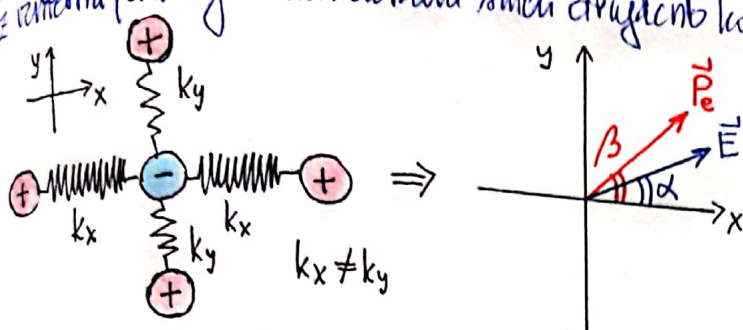 y
x
+
ky
+
-
+
kx
kx
ky
+
kx ≠ ky
⇒
y
P⃗e
β
E⃗
α
x